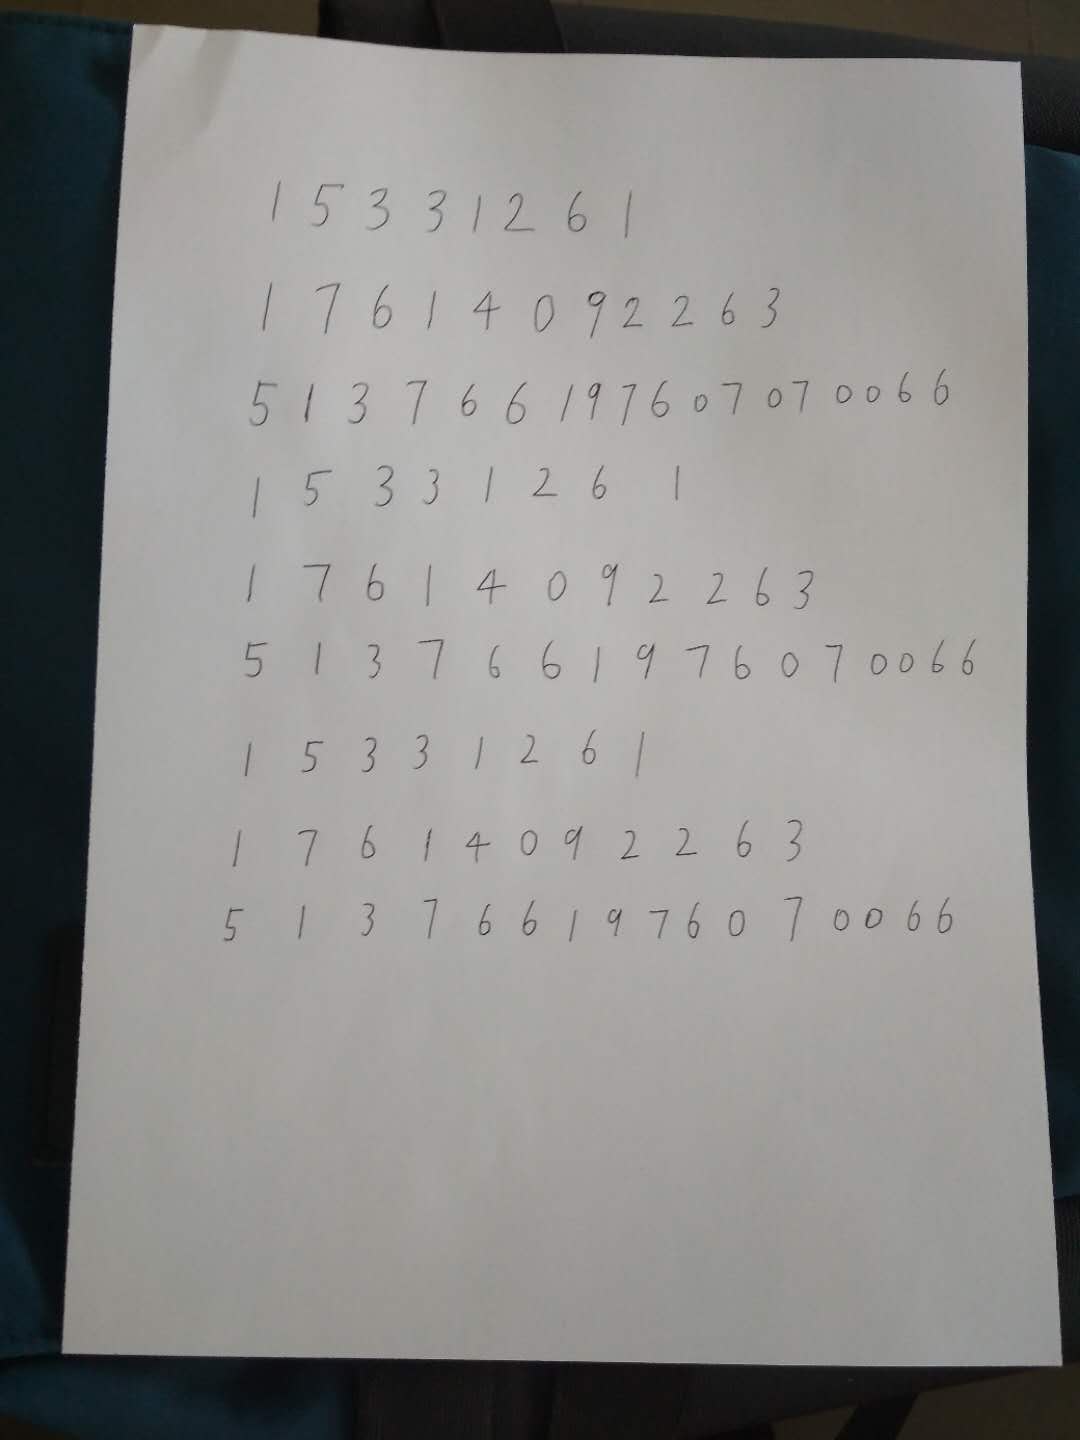 1 5 3 3 1 2 6 1
1 7 6 1 4 0 9 2 2 6 3
5 1 3 7 6 6 1 9 7 6 0 7 0 7 0 0 6 6
1 5 3 3 1 2 6 1
1 7 6 1 4 0 9 2 2 6 3
5 1 3 7 6 6 1 9 7 6 0 7 0 0 6 6
1 5 3 3 1 2 6 1
1 7 6 1 4 0 9 2 2 6 3
5 1 3 7 6 6 1 9 7 6 0 7 0 0 6 6